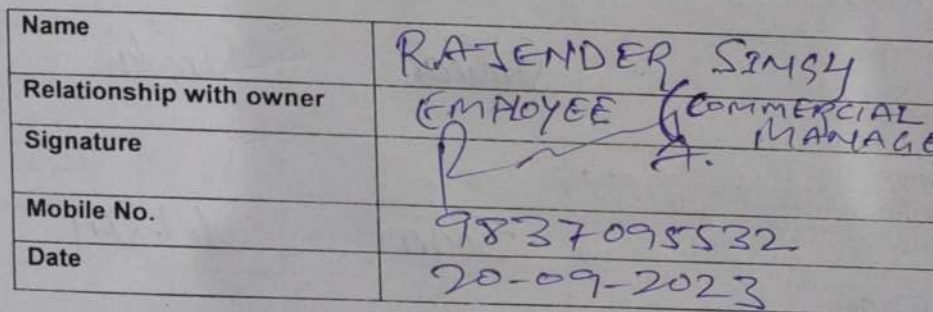 Name RAJENDER SINGH
Relationship with owner EMPLOYEE (COMMERCIAL
MANAGE
Signature
Mobile No. 9837095532
Date 20-09-2023